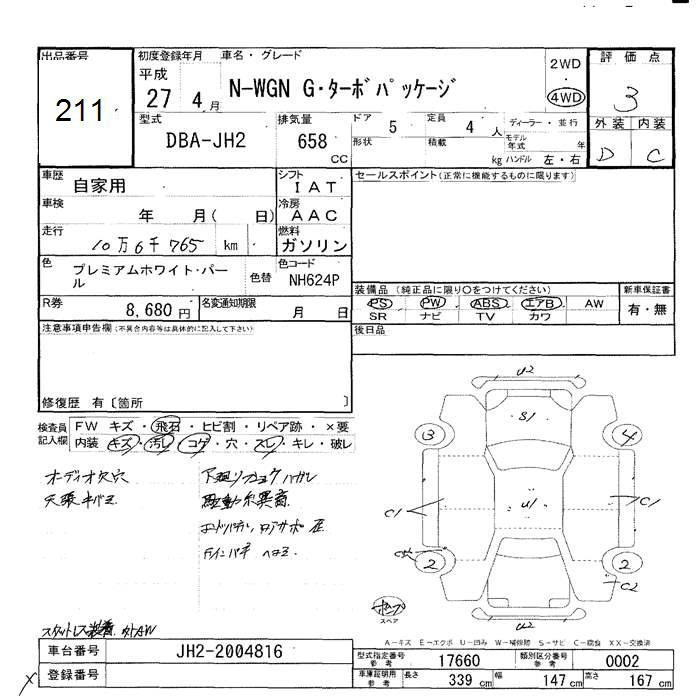 出品番号
211
初度登録年月
平成
27 4 月
車名・グレード
N-WGN G・ターボパッケージ
2WD
4WD
評価点
3
型式
DBA-JH2
排気量
658
CC
ドア
5
定員
4 人
形状
積載
kg
ディーラー・並行
モデル年式
年
ハンドル 左・右
外装 内装
D C
車歴
自家用
シフト
IAT
セールスポイント(正常に機能するものに限ります)
車検
年 月( 日)
冷房
AAC
走行
10万6千765 km
燃料
ガソリン
色
プレミアムホワイト・パール
色替
色コード
NH624P
装備品(純正品に限り○をつけてください)
新車保証書
PS PW ABS エアB AW
SR ナビ TV カワ
有・無
R券
8,680円
名変通知期限
月 日
後日品
注意事項申告欄(不具合内容等は具体的に記入して下さい)
修復歴 有〔箇所 〕
検査員記入欄
FW キズ・飛石・ヒビ割・リペア跡・×要
内装 キズ・汚レ・コゲ・穴・スレ・キレ・破レ
オーディオ欠穴
駆動系異音
U2
S1
3
4
U1
C1
C1
2
2
C2
U2
スペア
スタットレス装着 社外AW
A-キズ E-エクボ U-凹み W-補修跡 S-サビ C-腐食 XX-交換済
車台番号
JH2-2004816
登録番号
型式指定番号
参考
17660
類別区分番号
参考
0002
車庫証明用
参考
長さ
339 cm
幅
147 cm
高さ
167 cm